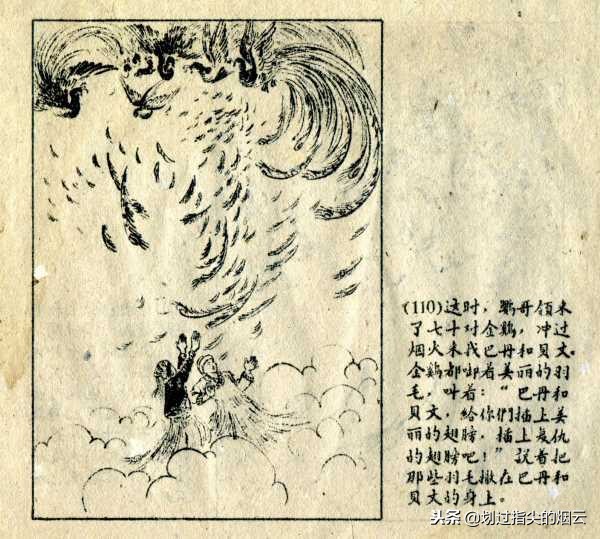 (110)这时，鹩哥領来
了七十对金鷄，冲过
烟火来找巴丹和貝文。
金鷄都啣着美丽的羽
毛，叫着：“巴丹和
貝文，給你們插上美
丽的翅膀，插上复仇
的翅膀吧！”說着把
那些羽毛撒在巴丹和
貝文的身上。
头条 @划过指尖的烟云